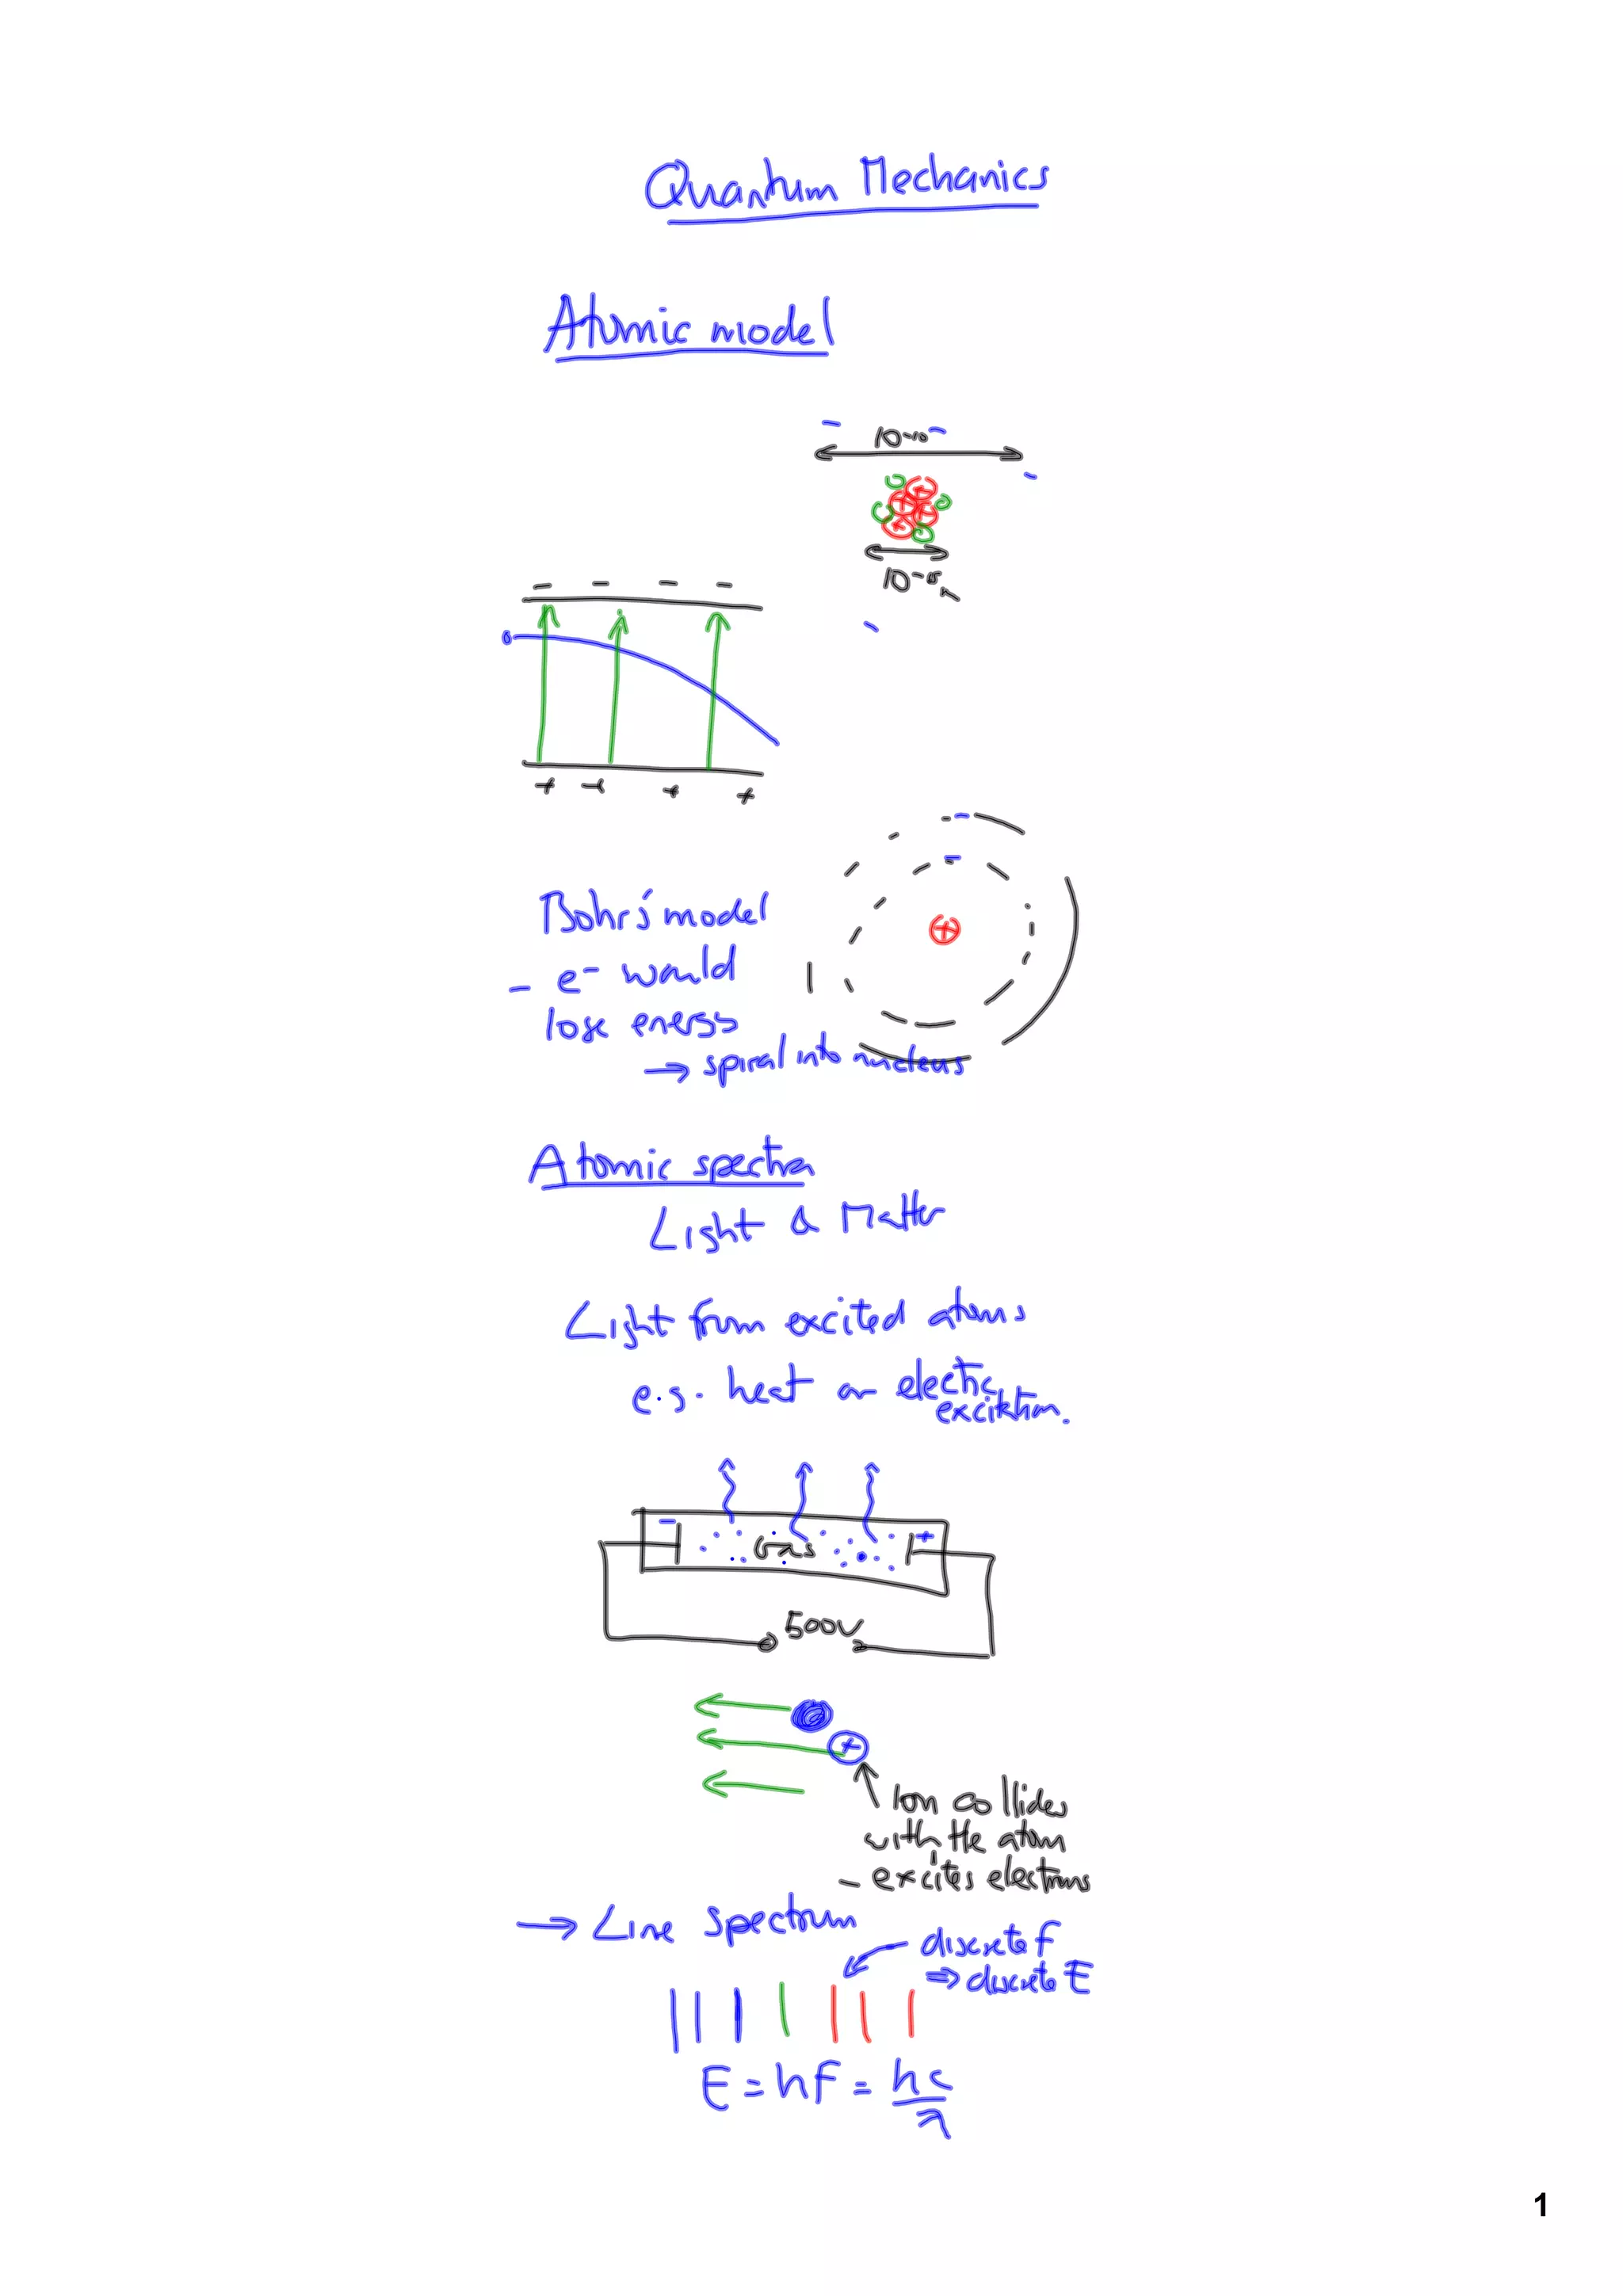 Quantum Mechanics
Atomic model
10⁻¹⁰
- - - -
+ + + +
Bohr's model
- e⁻ would
lose energy
→ spiral into nucleus
Atomic spectra
Light & Matter
Light from excited atoms
e.g. heat or electric
excitation.
- Gas +
500V
+
Ion collides
with the atom
- excites electrons
→ Line spectrum
discrete f
⇒ discrete E
E = hf = hc/λ
1